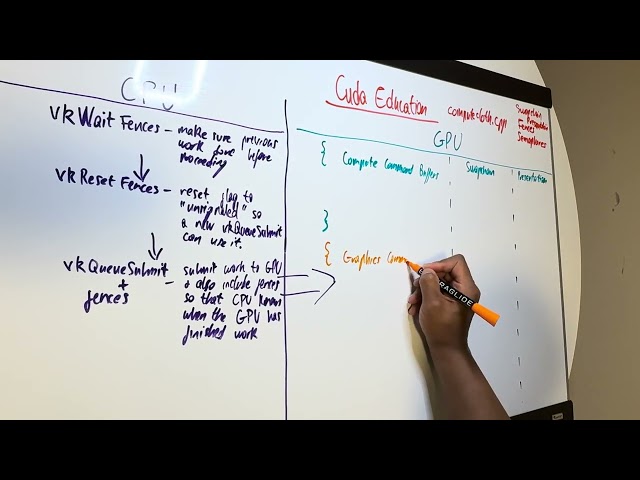 CPU
vkWait Fences - make sure previous
work done before
proceeding
vkReset Fences - reset flag to
"unsignaled" so
a new vkQueueSubmit
can use it.
vkQueueSubmit - submit work to GPU
+
fences
+ also include fences
so that CPU knows
when the GPU has
finished work
Cuda Education
computecloth.cpp
Swapchain
Presentation
Fences
Semaphores
GPU
{ Compute Command Buffers
Swapchain
Presentation
}
{ Graphics Comm
RAGLIDE